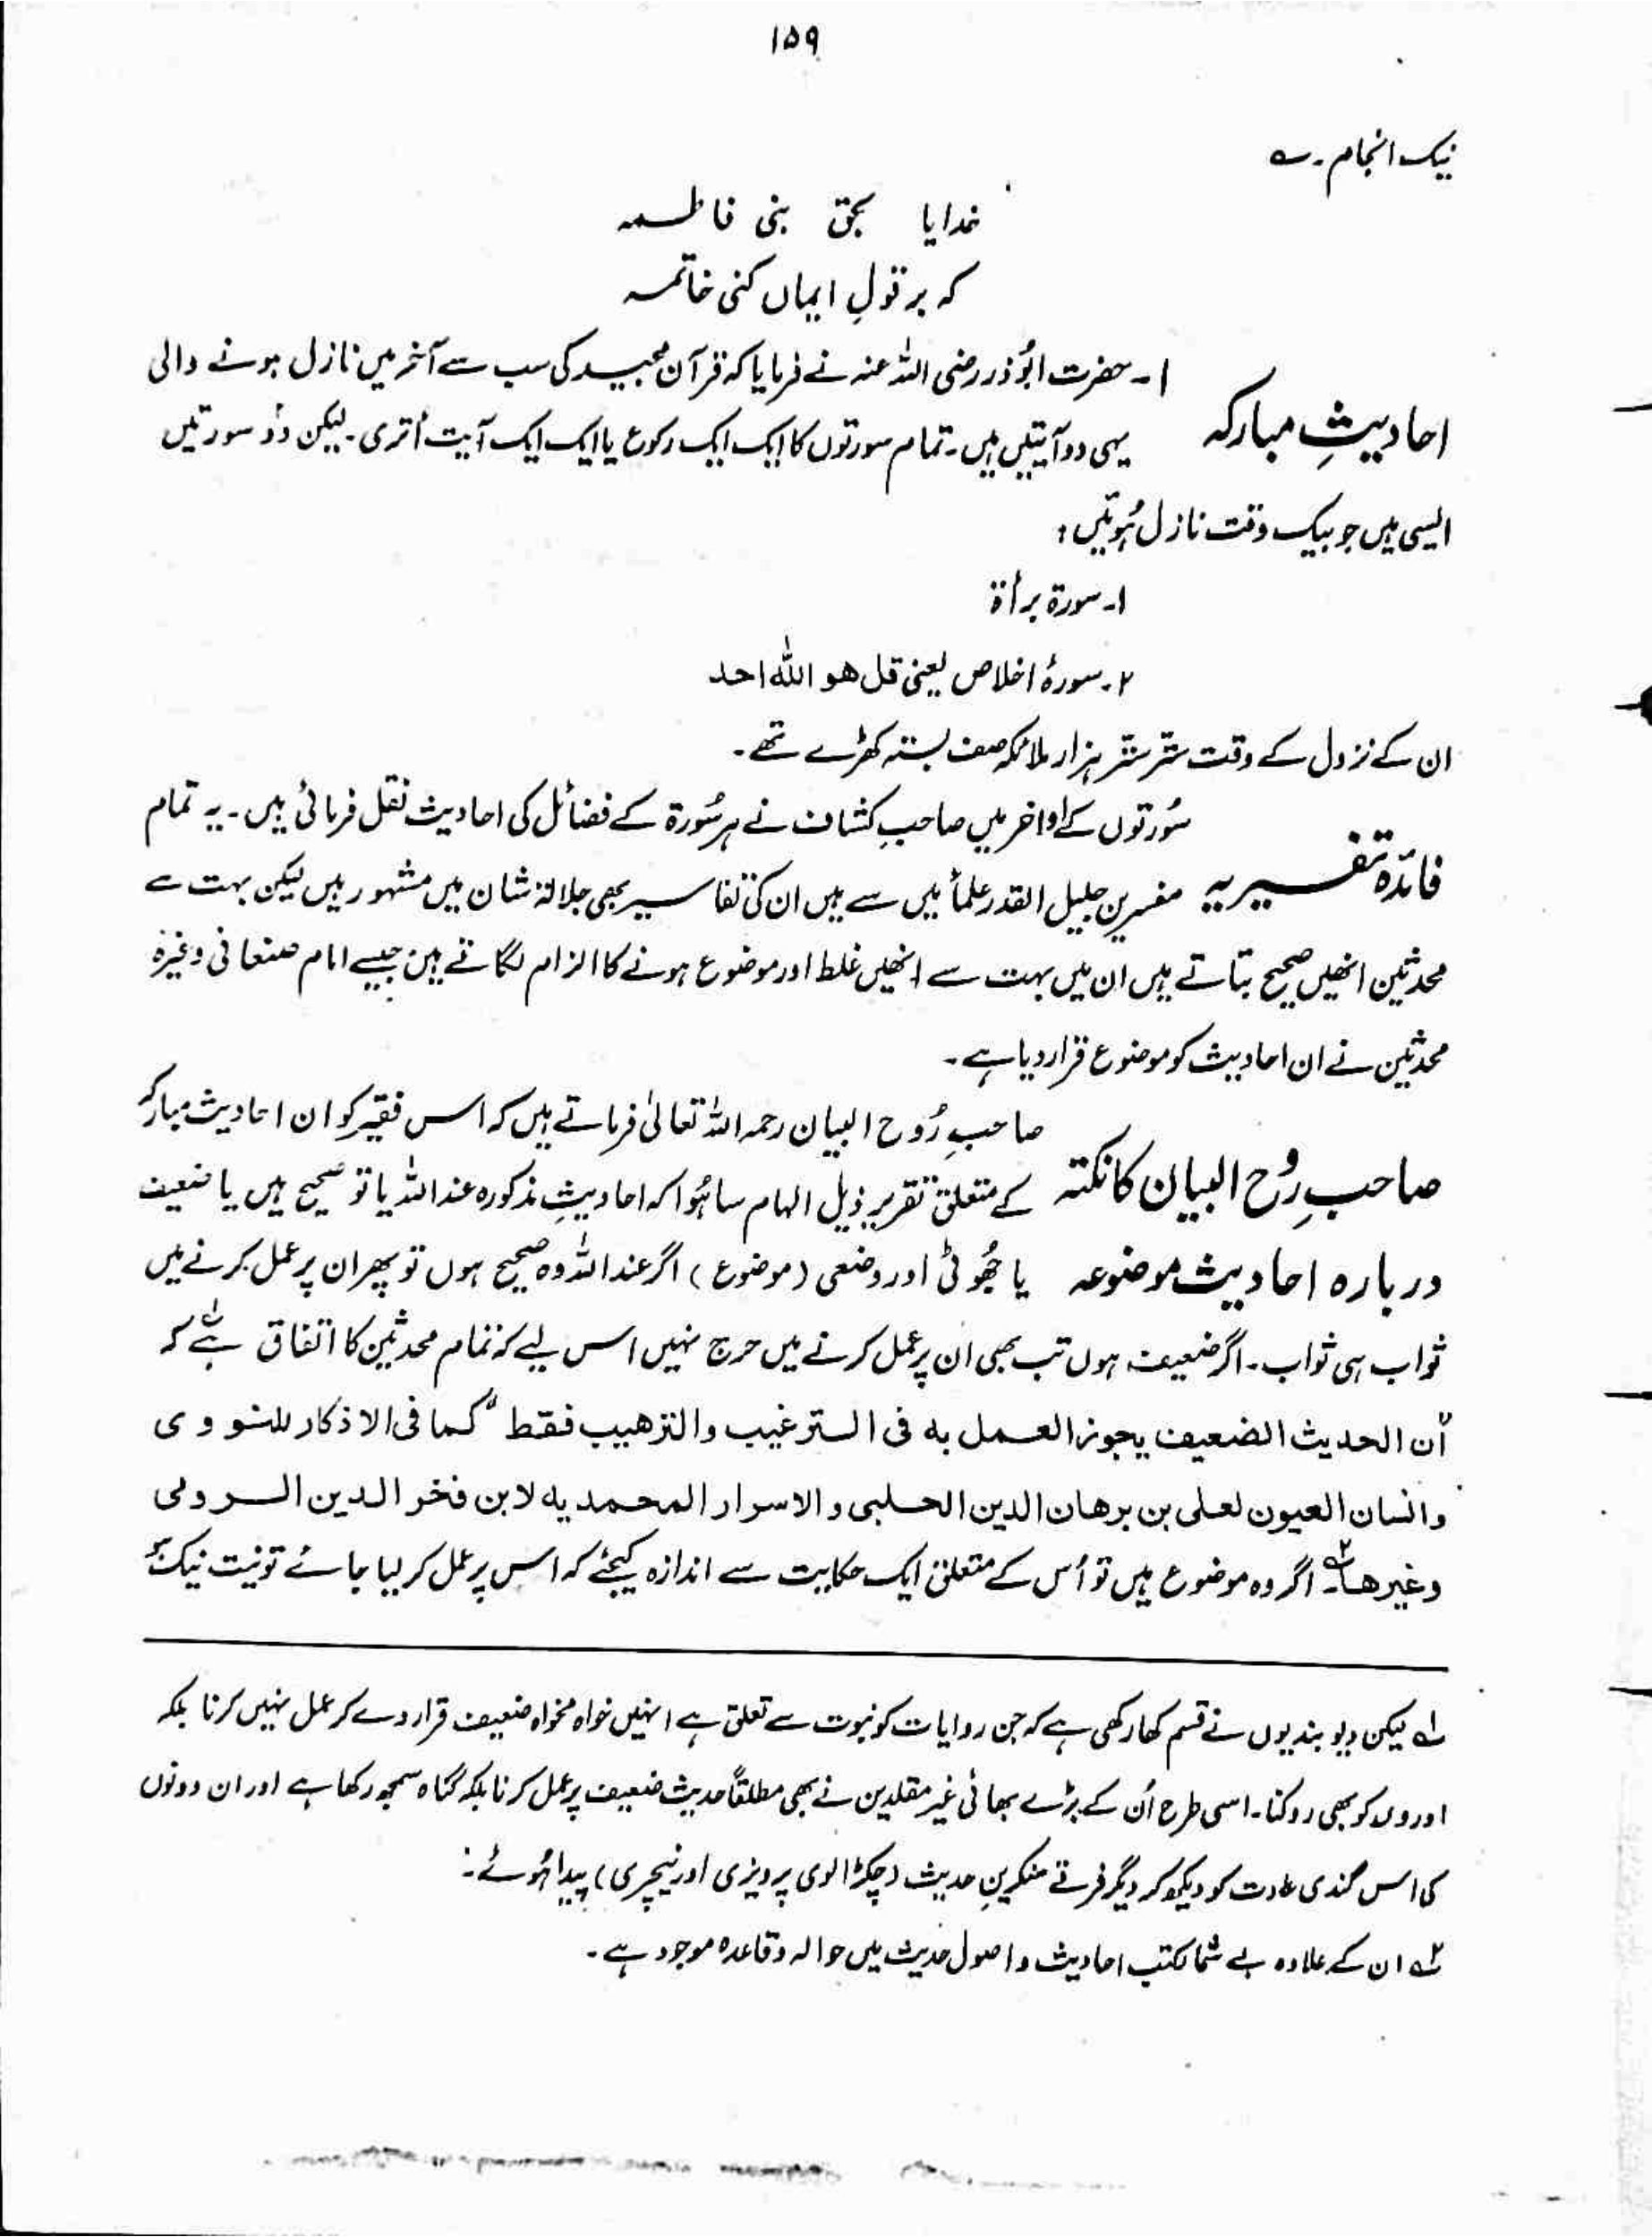 ۱۵۹
نیک انجام۔ ؎
خدایا بحق بنی فاطمہ
کہ بر قولِ ایماں کنی خاتمہ
احادیثِ مبارکہ ۱۔ حضرت ابُوذر رضی اللہ عنہ نے فرمایا کہ قرآن مجید کی سب سے آخر میں نازل ہونے والی
یہی دو آیتیں ہیں۔ تمام سورتوں کا ایک ایک رکوع یا ایک ایک آیت اُتری۔ لیکن دو سورتیں
ایسی ہیں جو بیک وقت نازل ہُوئیں :
۱۔ سورۃ برأۃ
۲۔ سورۂ اخلاص یعنی قل ھو اللہ احد
ان کے نزول کے وقت ستر ستر ہزار ملائکہ صف بستہ کھڑے تھے۔
سُورتوں کے اواخر میں صاحبِ کشاف نے ہر سُورۃ کے فضائل کی احادیث نقل فرمائی ہیں۔ یہ تمام
فائدۂ تفسیریہ مفسرین جلیل القدر علمأ میں سے ہیں ان کی تفاسیر بھی جلالۃ شان میں مشہور ہیں لیکن بہت سے
محدثین انھیں صحیح بتاتے ہیں ان میں بہت سے انھیں غلط اور موضوع ہونے کا الزام لگاتے ہیں جیسے امام صنعانی وغیرہ
محدثین نے ان احادیث کو موضوع قرار دیا ہے۔
صاحبِ رُوح البیان رحمہ اللہ تعالیٰ فرماتے ہیں کہ اس فقیر کو ان احادیث مبارکہ
صاحبِ رُوح البیان کا نکتہ کے متعلق تقریر ذیل الہام سا ہُوا کہ احادیثِ مذکورہ عند اللہ یا تو صحیح ہیں یا ضعیف
دربارہ احادیث موضوعہ یا جُھوٹی اور وضعی (موضوع) اگر عند اللہ وہ صحیح ہوں تو پھر ان پر عمل کرنے میں
ثواب ہی ثواب۔ اگر ضعیف ہوں تب بھی ان پر عمل کرنے میں حرج نہیں اس لیے کہ تمام محدثین کا اتفاق ہے ۱؎ کہ
"ان الحدیث الضعیف یجوز العمل بہ فی الترغیب والترھیب فقط" کما فی الاذکار للنووی
وانسان العیون لعلی بن برھان الدین الحلبی والاسرار المحمدیہ لابن فخر الدین الرومی
وغیرھا ۲؎۔ اگر وہ موضوع ہیں تو اُس کے متعلق ایک حکایت سے اندازہ کیجئے کہ اس پر عمل کر لیا جائے تو نیت نیک
۱؎ لیکن دیوبندیوں نے قسم کھا رکھی ہے کہ جن روایات کو نبوت سے تعلق ہے انہیں خواہ مخواہ ضعیف قرار دے کر عمل نہیں کرنا بلکہ
اوروں کو بھی روکنا۔ اسی طرح اُن کے بڑے بھائی غیر مقلدین نے بھی مطلقاً حدیث ضعیف پر عمل کرنا بلکہ گناہ سمجھ رکھا ہے اور ان دونوں
کی اس گندی عادت کو دیکھ کر دیگر فرقے منکرینِ حدیث (چکڑالوی پرویزی اور نیچری) پیدا ہُوئے :
۲؎ ان کے علاوہ بے شمار کتب احادیث و اصول حدیث میں حوالہ و قاعدہ موجود ہے۔